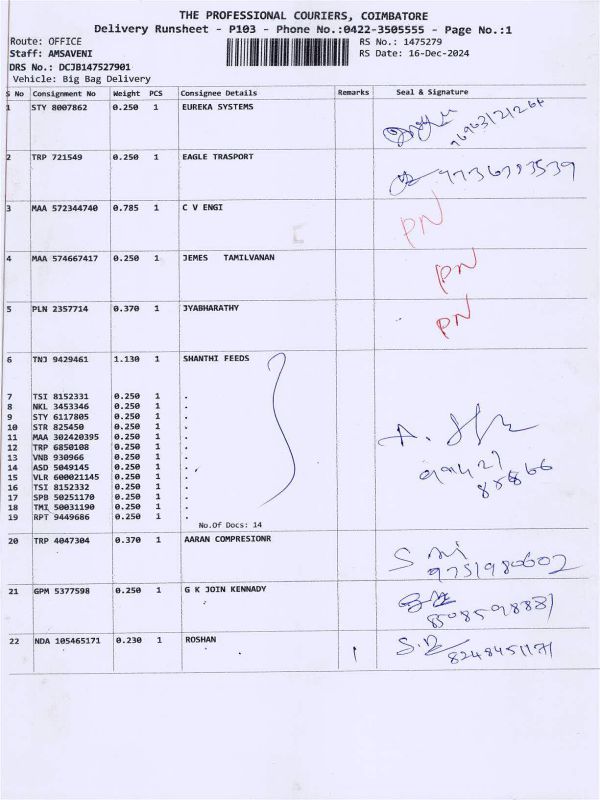 THE PROFESSIONAL COURIERS, COIMBATORE
Delivery Runsheet - P103 - Phone No.:0422-3505555 - Page No.:1
Route: OFFICE RS No.: 1475279
Staff: AMSAVENI RS Date: 16-Dec-2024
DRS No.: DCJB147527901
Vehicle: Big Bag Delivery
S No Consignment No Weight PCS Consignee Details Remarks Seal & Signature
1 STY 8007862 0.250 1 EUREKA SYSTEMS
2 TRP 721549 0.250 1 EAGLE TRASPORT
3 MAA 572344740 0.785 1 C V ENGI PN
4 MAA 574667417 0.250 1 JEMES TAMILVANAN PN
5 PLN 2357714 0.370 1 JYABHARATHY PN
6 TNJ 9429461 1.130 1 SHANTHI FEEDS
7 TSI 8152331 0.250 1 .
8 NKL 3453346 0.250 1 .
9 STY 6117805 0.250 1 .
10 STR 825450 0.250 1 .
11 MAA 302420395 0.250 1 .
12 TRP 6850108 0.250 1 .
13 VNB 930966 0.250 1 .
14 ASD 5049145 0.250 1 .
15 VLR 600021145 0.250 1 .
16 TSI 8152332 0.250 1 .
17 SPB 50251170 0.250 1 .
18 TMI 50031190 0.250 1 .
19 RPT 9449686 0.250 1 .
No.Of Docs: 14
20 TRP 4047304 0.370 1 AARAN COMPRESIONR
9751980602
21 GPM 5377598 0.250 1 G K JOIN KENNADY
22 NDA 105465171 0.230 1 ROSHAN
8248451171